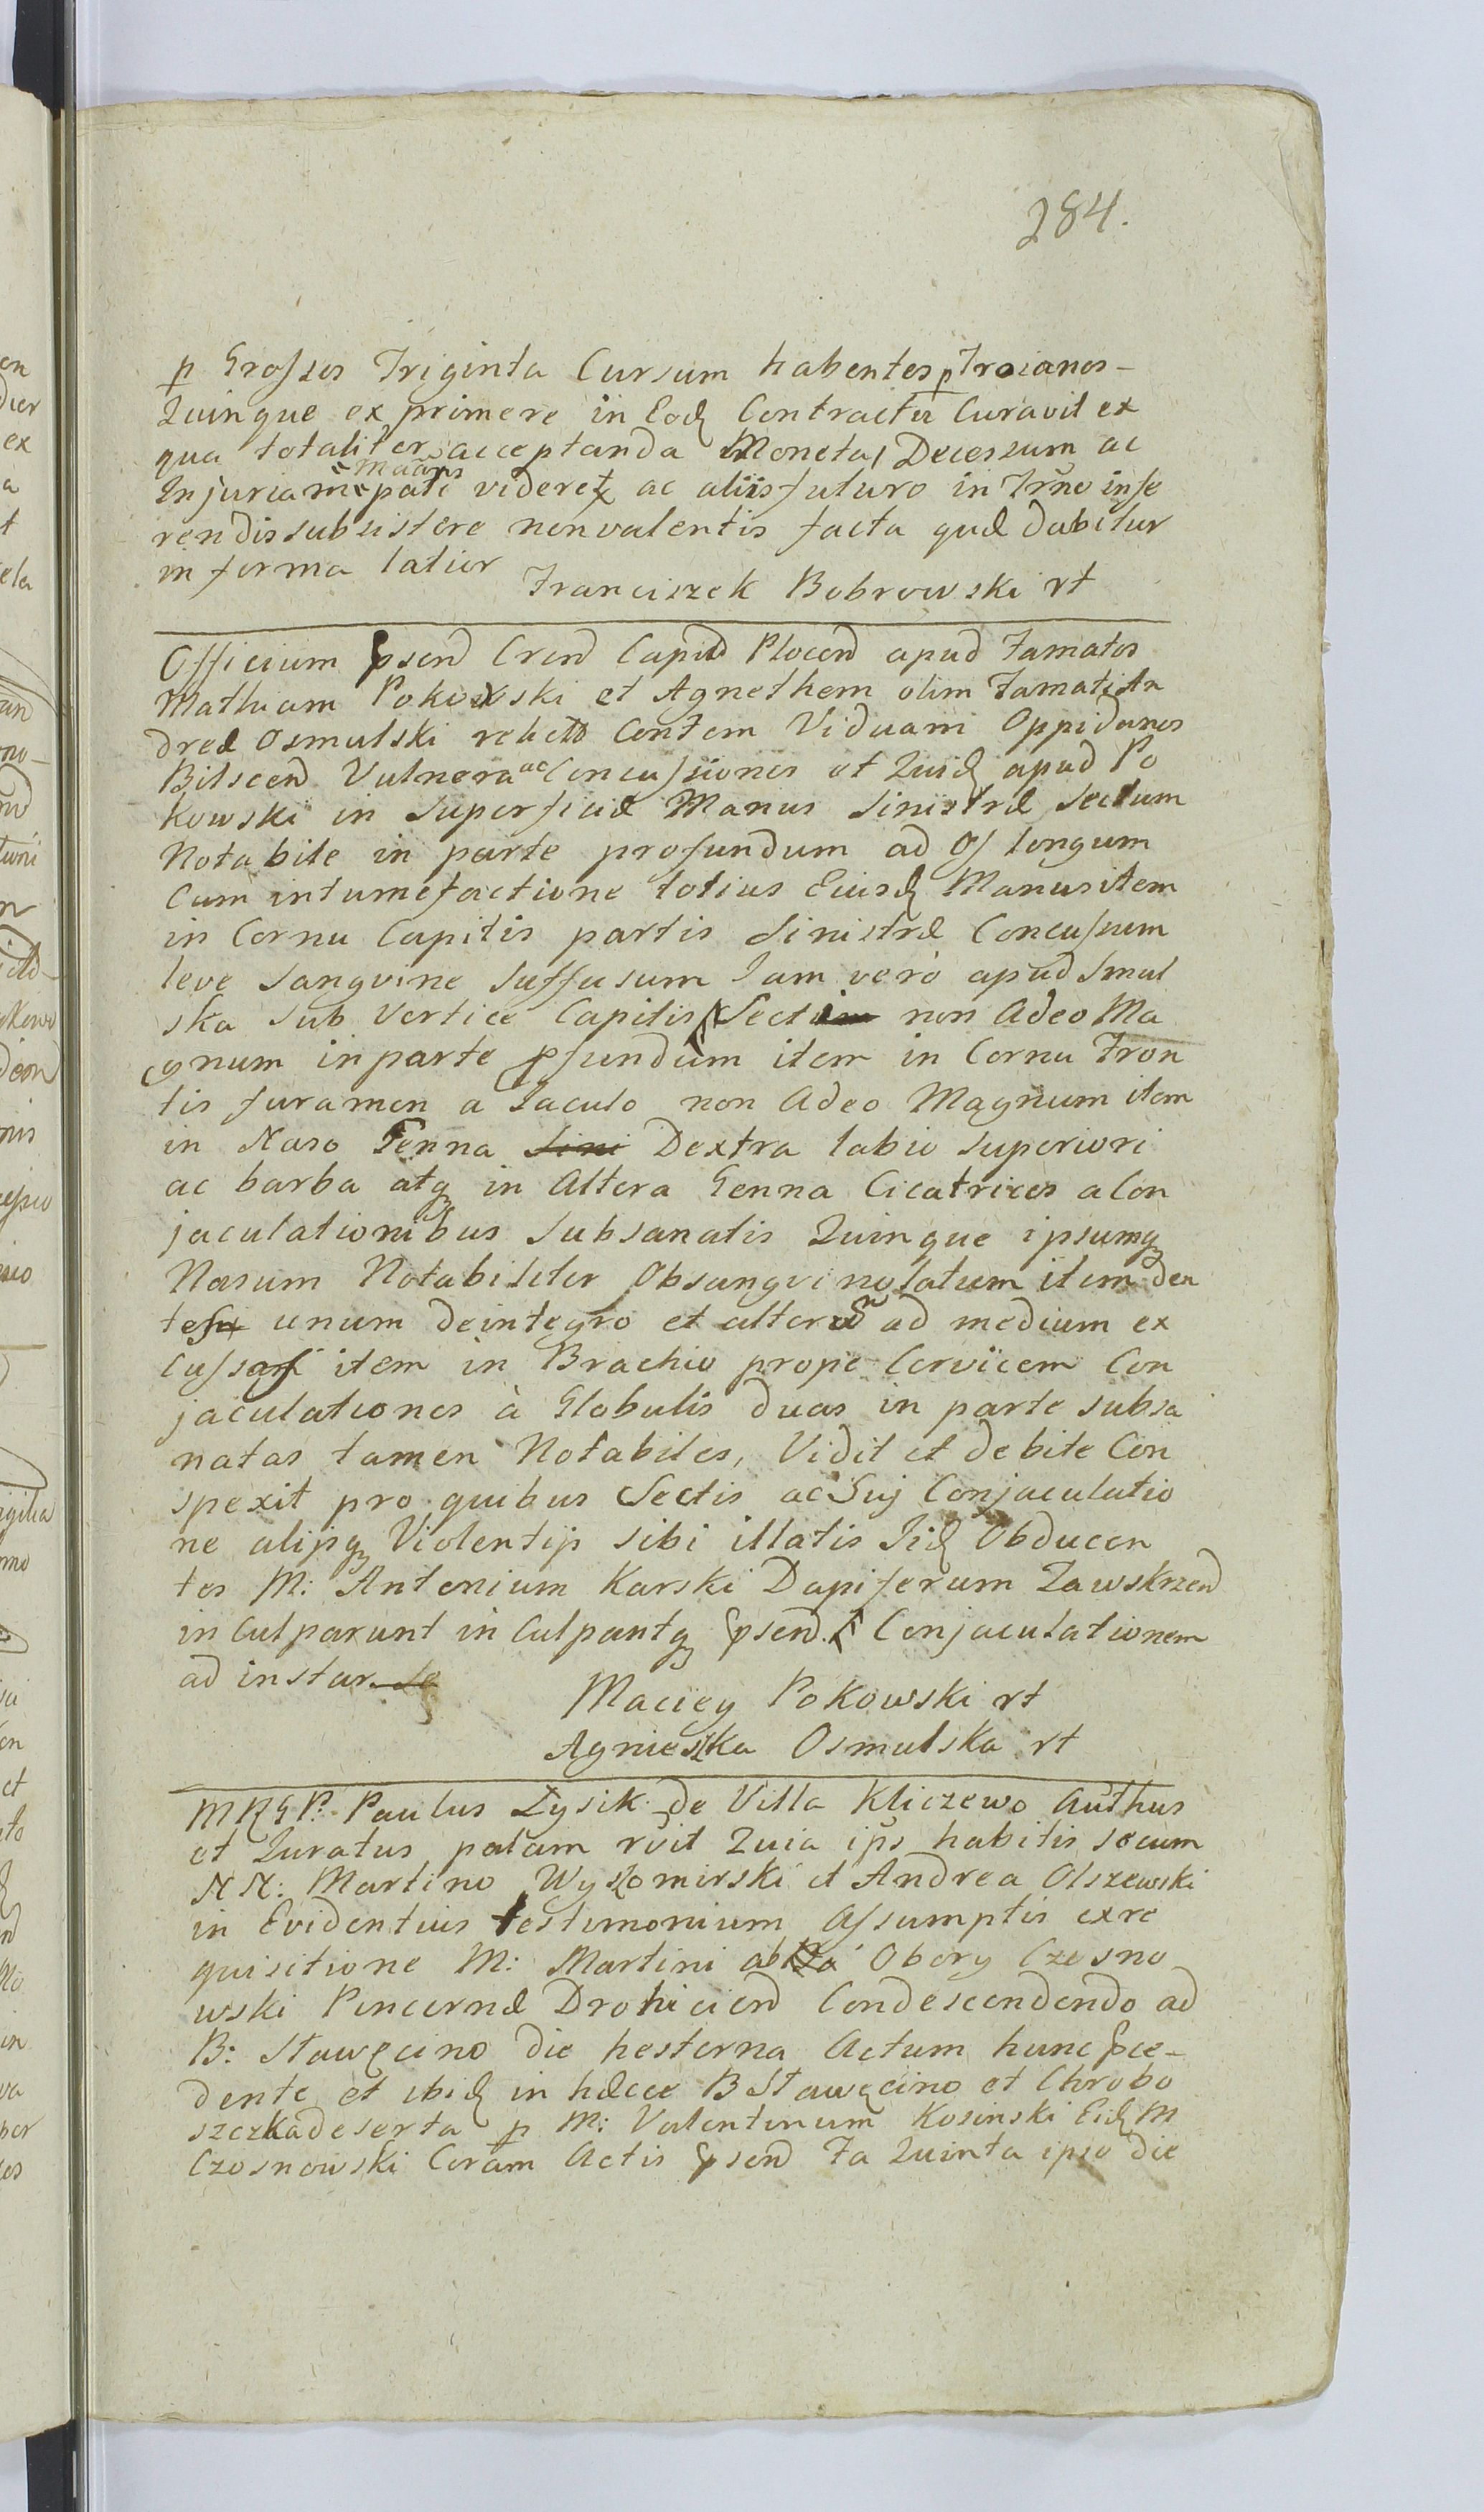 284.
p Grosses Triginta Cursum habentes p Troianos-
Quinque exprimere in Eod Contractu Curavit ex
qua totaliter acceptanda Moneta, Decessum ac
Injuriam pati videretq ac aliis futuro in Trno inse
rendis subsistere non valentis facta quæ dabitur
in forma latior
Franciszek Bobrowski rt
Officium psend Crend Capitd Plocend apud Famatos
Mathiam Pokowski et Agnethem olim Famati An
dreæ Osmulski relictd Contem Viduam Oppidanos
Bilscend Vulnera ac Concussiones et Quid apud Po
kowski in Superficie Manus Sinistræ Sectum
Notabile in parte profundum ad Os longum
Cum intumefactione totius Eiusd Manus item
in Cornu Capitis partis Sinistræ Concussum
leve Sangvine Suffusum Iam verò apud Smul
ska Sub Vertice Capitis Sectum non Adeo Ma
gnum in parte pfundum item in Cornu Fron
tis furamen a Iaculo non Adeo Magnum item
in Naso Genna Sini Dextra labio Superiori
ac barba atq in Altera Genna Cicatrices a Con
jaculationibus Subsanatis Quinque ipsumq
Nasum Notabiliter Obsangvinolatum item den
tes unum de integro et alterũ ad medium ex
cussum item in Brachio prope Cervicem Con
jaculationes à Globulis duas in parte subsa
natas tamen Notabiles, Vidit et debite Con
spexit pro quibus Sectis ac Suj Conjaculatio
ne alijsq Violentijs sibi illatis Iid Obducen
tes M: Antonium Karski Dapiferum Zawskrzend
inculparunt inculpantq psend Conjaculationem
ad instar
Maciey Pokowski rt
Agnieszka Osmulska rt
MRGP. Paulus Zysik de Villa Kliczewo Authus
et Iuratus palam rvit Quia ips habitis secum
NN: Martino Wyszomirski et Andrea Olszewski
in Evidentius testimonium Assumptis ex re
quisitione M: Martini Obory Czosno
wski Pincernæ Drohiciend Condescendendo ad
B: Stawęcino die hesterna Actum hunc pce-
dente et ibid in hæcce B Stawęcino et Chrobo
szczka deserta p M: Valentinum Kosinski Eid M
Czosnowski Coram Actis psend Fa Quinta ipso die